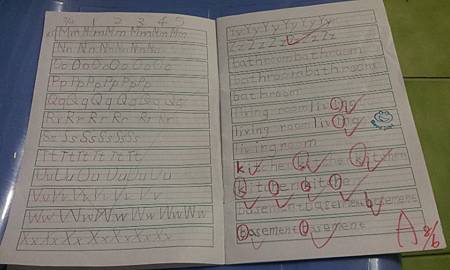 1 2 3 4 5
Mm Mm Mm Mm Mm
Nn Nn Nn Nn Nn
Oo Oo Oo Oo Oo Oo
Pp Pp Pp Pp Pp
Qq Qq Qq Qq Qq
Rr Rr Rr Rr Rr
Ss Ss Ss Ss Ss
Tt Tt Tt Tt Tt
Uu Uu Uu Uu Uu
Vv Vv Vv Vv Vv
Ww Ww Ww Ww Ww
Xx Xx Xx Xx Xx Xx
Yy Yy Yy Yy Yy Yy
Zz Zz Zz Zz Zz
bathroom bathroom
bathroom bathroom
bathroom
living room living
living room living
living room
kitchen kitchen
kitchen kitchen
basement basement basement
basement basement
A